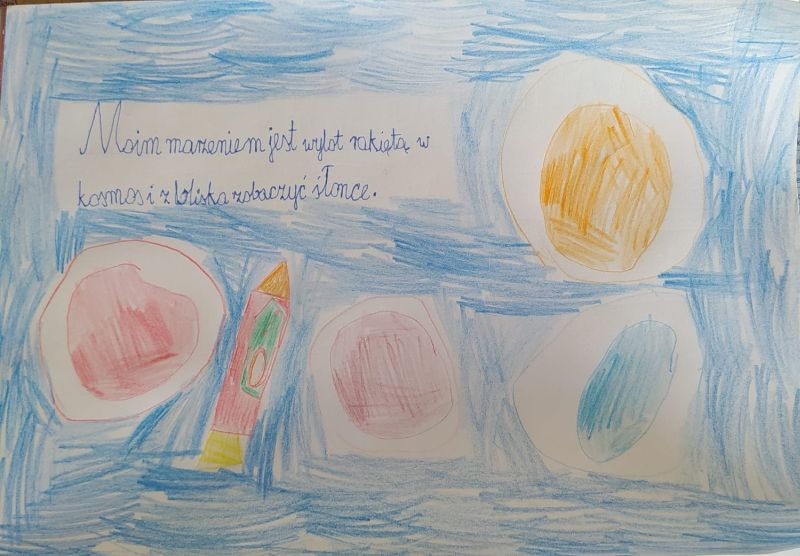 Moim marzeniem jest wylot rakiętą w
kosmos i z bliska zobaczyć słonce.